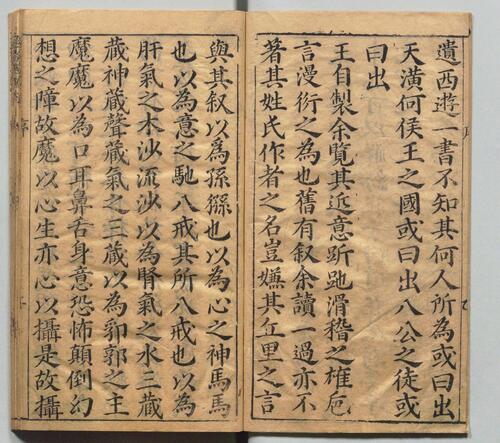 遺西遊一書不知其何人所為或曰出
天潢何侯王之國或曰出八公之徒或
曰出
王自製余覽其近意跅𧿧滑稽之雄巵
言漫衍之為也舊有叙余讀一過亦不
著其姓氏作者之名豈嫌其丘里之言
與其叙以為孫猻也以為心之神馬馬
也以為意之馳八戒其所八戒也以為
肝氣之木沙流沙以為腎氣之水三藏
藏神藏聲藏氣之三藏以為郛郭之主
魔魔以為口耳鼻舌身意恐怖顛倒幻
想之障故魔以心生亦心以攝是故攝
序